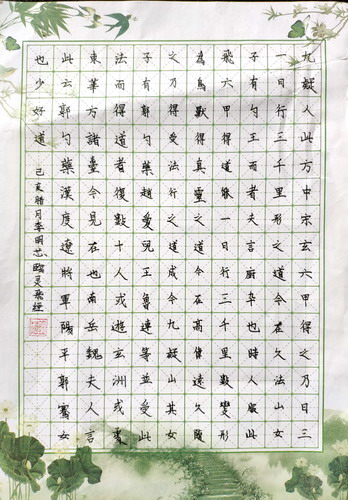 九疑人此方中宋玄六甲得之乃日三
一日行三千里形之道今在久法山女
子有勺王而者夫言廚辛也時人服此
飛六甲得道能一日行三千里數變形
為鳥獸得真靈之道今在高偉遠久隨
之乃得受法行之道成令九疑山其女
子有郭勺藥趙愛兒王魯連等並受此
法而得道者復數十人或遊玄洲或處
東華方諸臺今見在也南岳魏夫人言
此云郭勺藥漢度遼將軍陽平郭騫女
也少好道
己亥腊月李明芯臨灵飛經